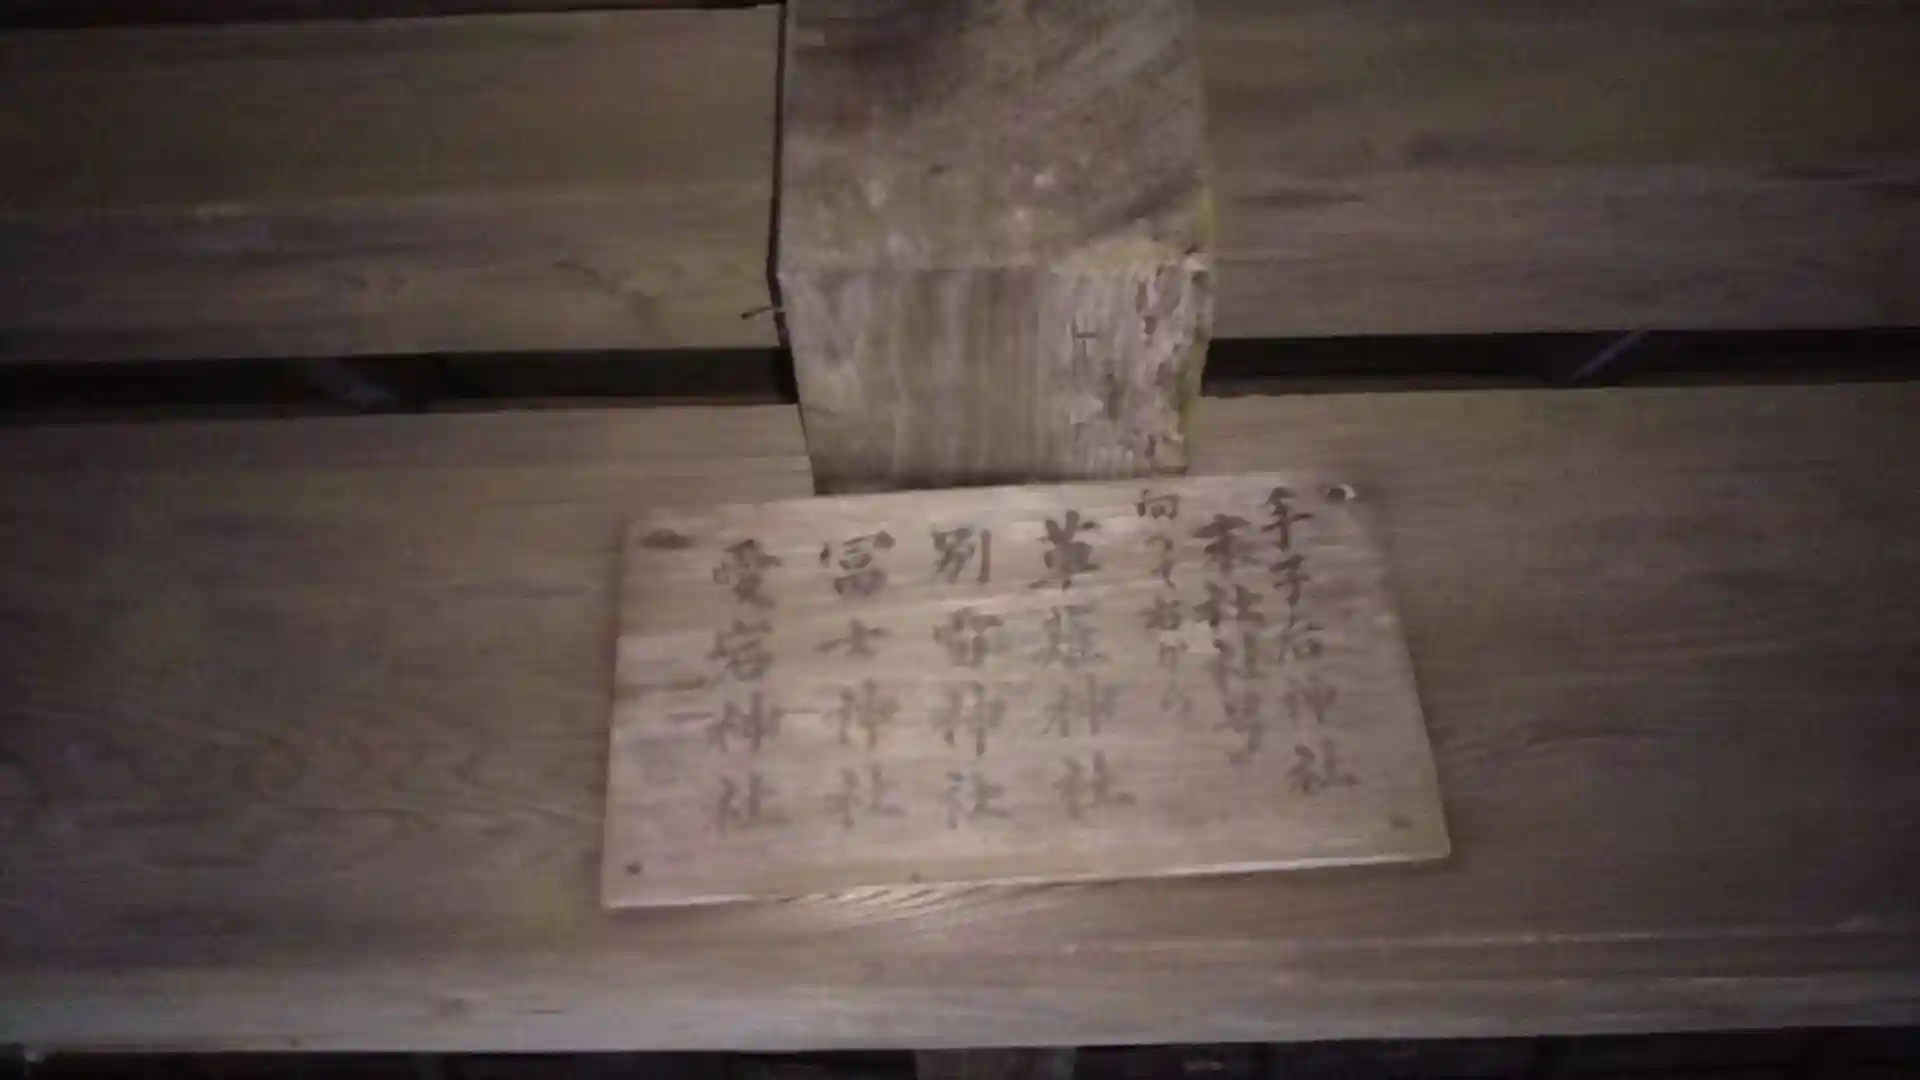 手子后神社
末社社号
向って右から
葦姫神社
別雷神社
富士神社
愛宕神社